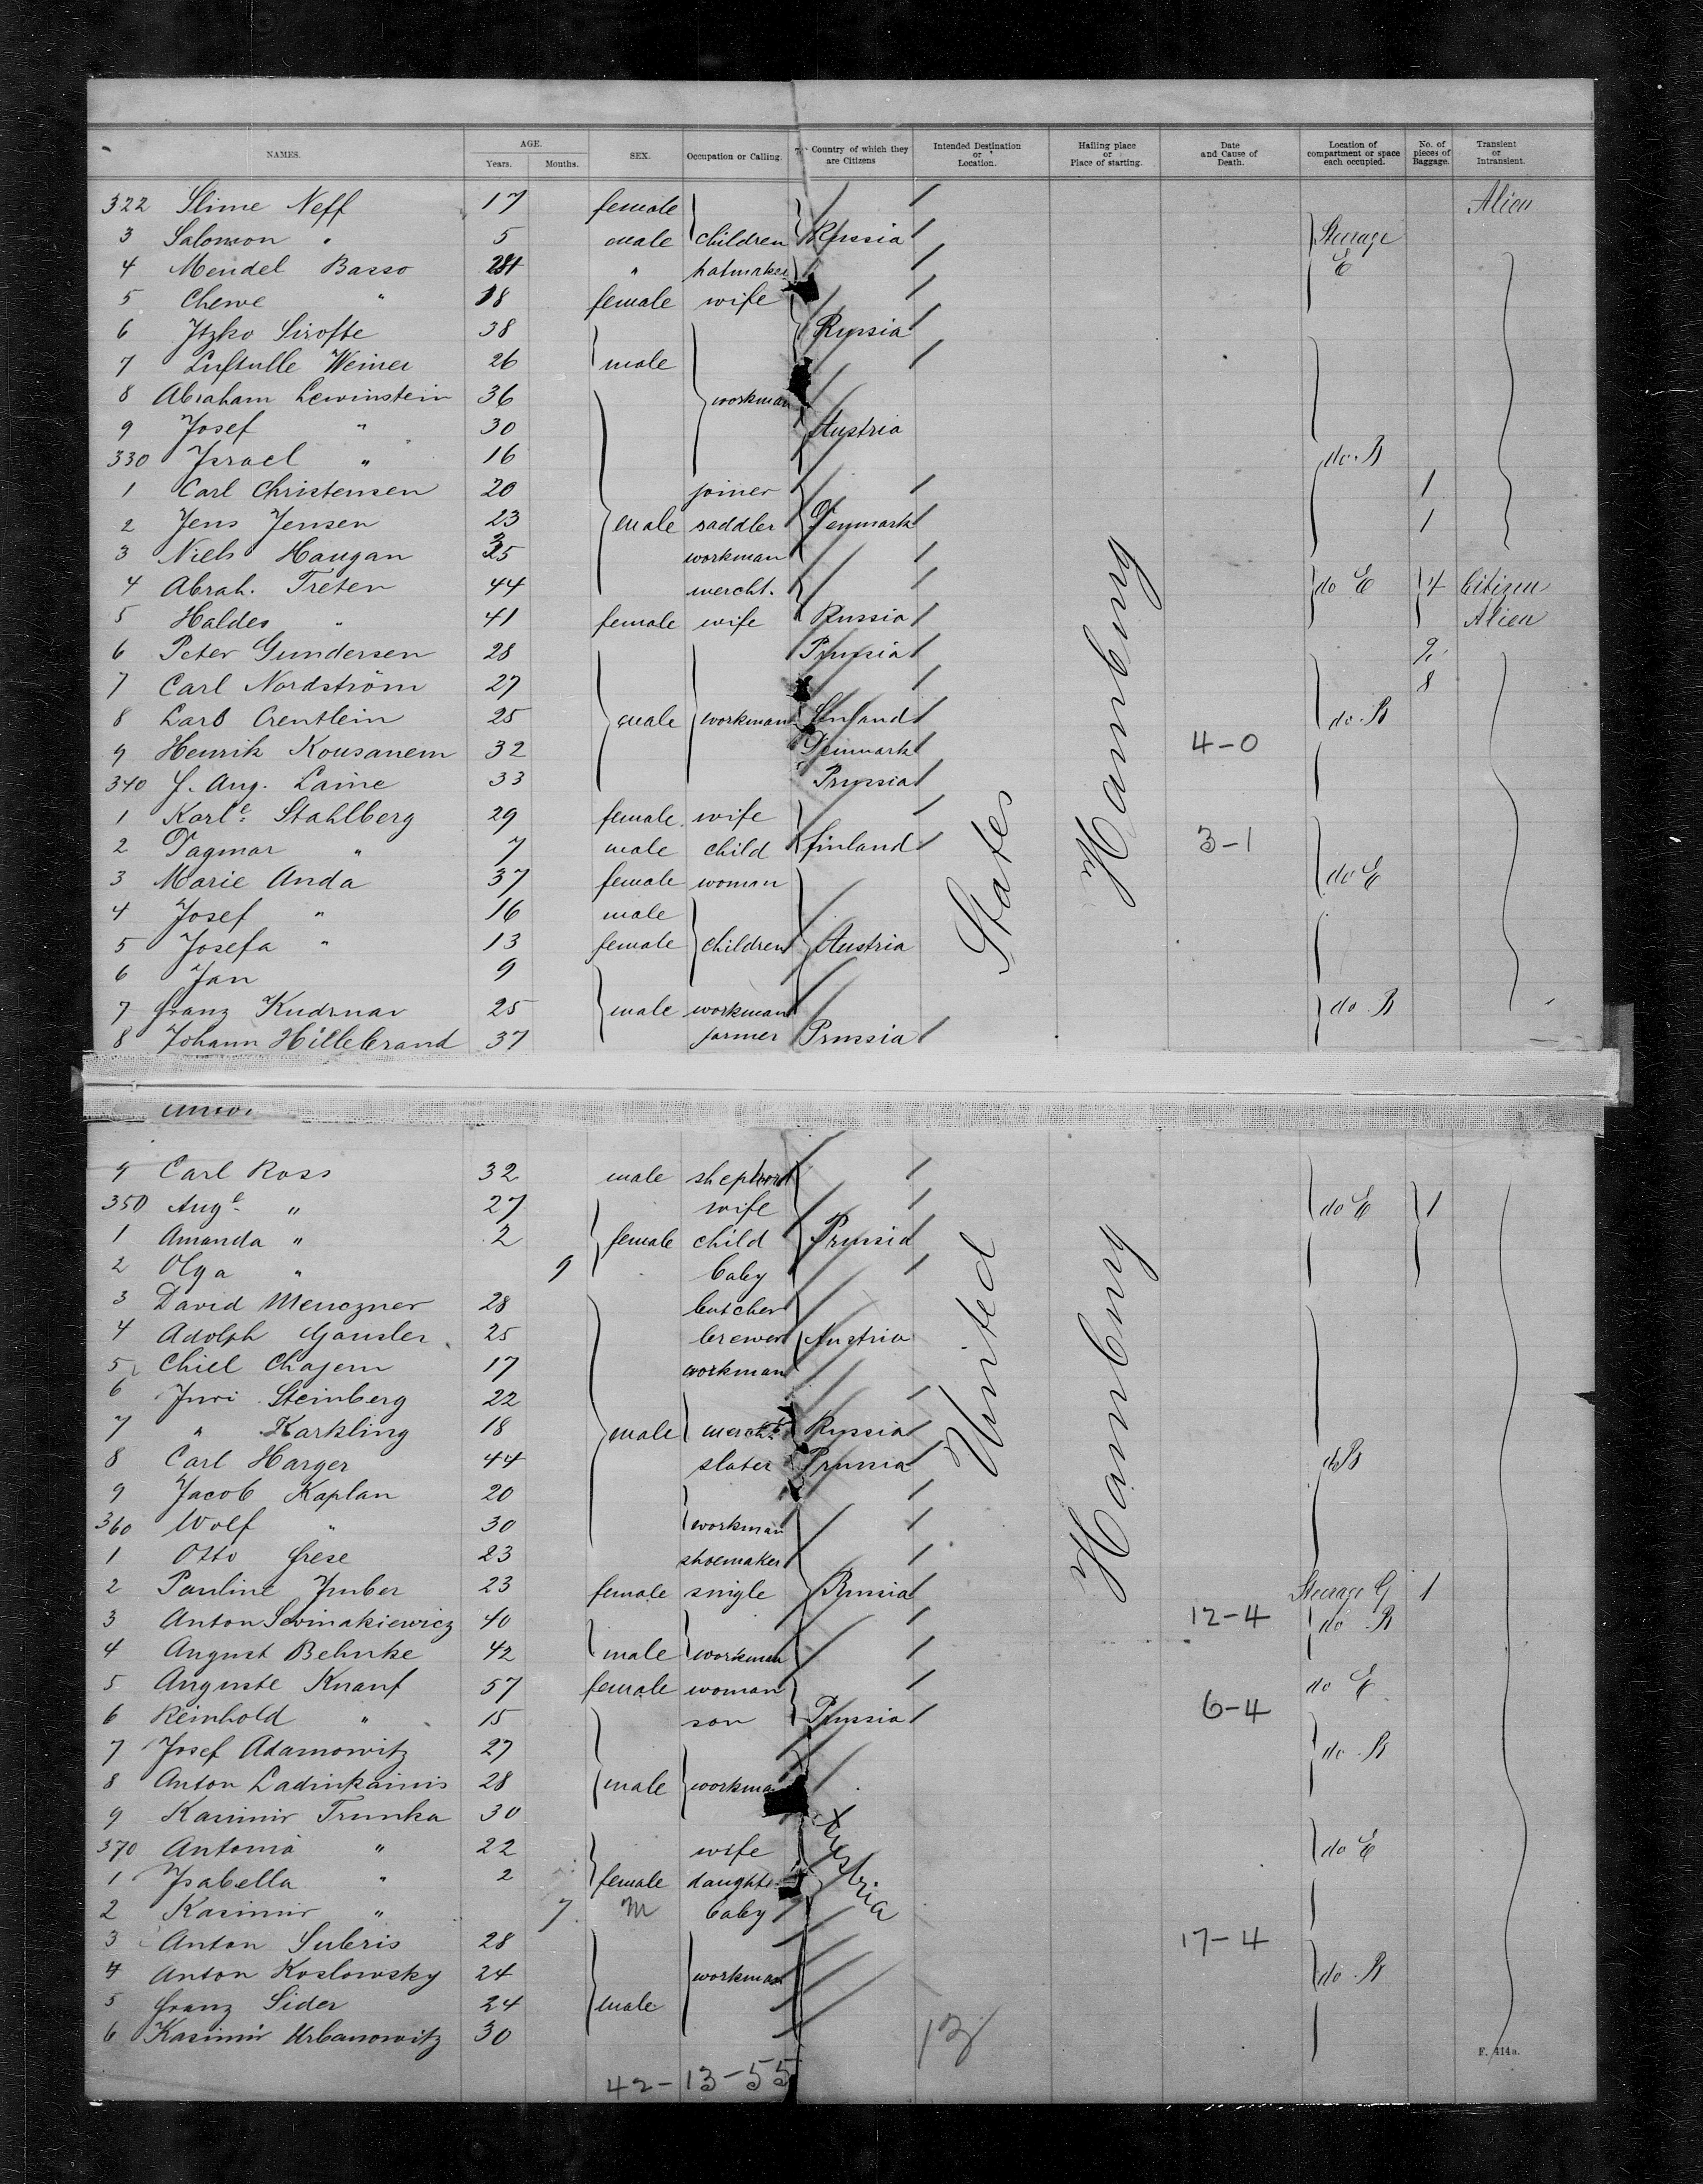 NAMES. AGE. Years. Months. SEX. Occupation or Calling. Country of which they are Citizens Intended Destination or Location. Hailing place or Place of starting. Date and Cause of Death. Location of compartment or space each occupied. No. of pieces of Baggage. Transient or Intransient.
322 Slime Neff 17 female Alien
3 Salomon " 5 male children Russia Steerage
4 Mendel Basso " hatmaker E
5 Chewe " 18 female wife
6 Itzko Sirofte 38 Russia
7 Weiner 26 male
8 Abraham Lewinstein 36 workman
9 Josef " 30 Austria
330 Israel " 16 do. B
1 Carl Christensen 20 joiner 1
2 Jens Jensen 23 male saddler Denmark 1
3 Niels Haugan workman
4 Abrah. Treten 44 mercht. do E 4 Citizen
5 Haldes " 41 female wife Russia Alien
6 Peter Gundersen 28 Prussia
7 Carl Nordström 27 8
8 Lars 25 male workman Finland do. B
9 Henrik Kousanem 32 Denmark 4-0
340 J. Aug. Laine 33 Prussia
1 Karle. Stahlberg 29 female wife
2 Dagmar " 7 male child finland 3-1
3 Marie Anda 37 female woman do E
4 Josef " 16 male
5 Josefa " 13 female children Austria
6 Jan 9
7 franz Kudrnar 25 male workman do. B
8 Johann Hillebrand 37 farmer Prussia
States
Hamburg
9 Carl Ross 32 male shepherd
350 Auge " 27 wife do E 1
1 Amanda " 2 female child Prussia
2 Olga " 9 baby
3 David Menczner 28 butcher
4 Adolph Gansler 25 brewer Austria
5 Chiel Chajem 17 workman
6 Juri Steinberg 22
7 " Karkling 18 male mercht Russia
8 Carl Harger 44 slater Prussia do B
9 Jacob Kaplan 20
360 Wolf " 30 workman
1 Otto frese 23 shoemaker
2 Pauline Juber 23 female single Russia Steerage G 1
3 Anton Sevinakiewicz 40 12-4 do B
4 August Behnke 42 male workman
5 Auguste Knauf 57 female woman do E
6 Reinhold " 15 son Prussia 6-4
7 Josef Adamowitz 27 do. B
8 Anton Ladinkainis 28 male workman
9 Kasimir Trunka 30 Austria
370 Antonia " 22 wife do E
1 Isabella " 2 female daughte
2 Kasimir " 7 M baby
3 Anton Subris 28 17-4
4 Anton Koslowsky 24 workman do B
5 franz Sider 24 male
6 Kasimir Urbanowitz 30
United
Hamburg
13
F. 414a.
42-13-55